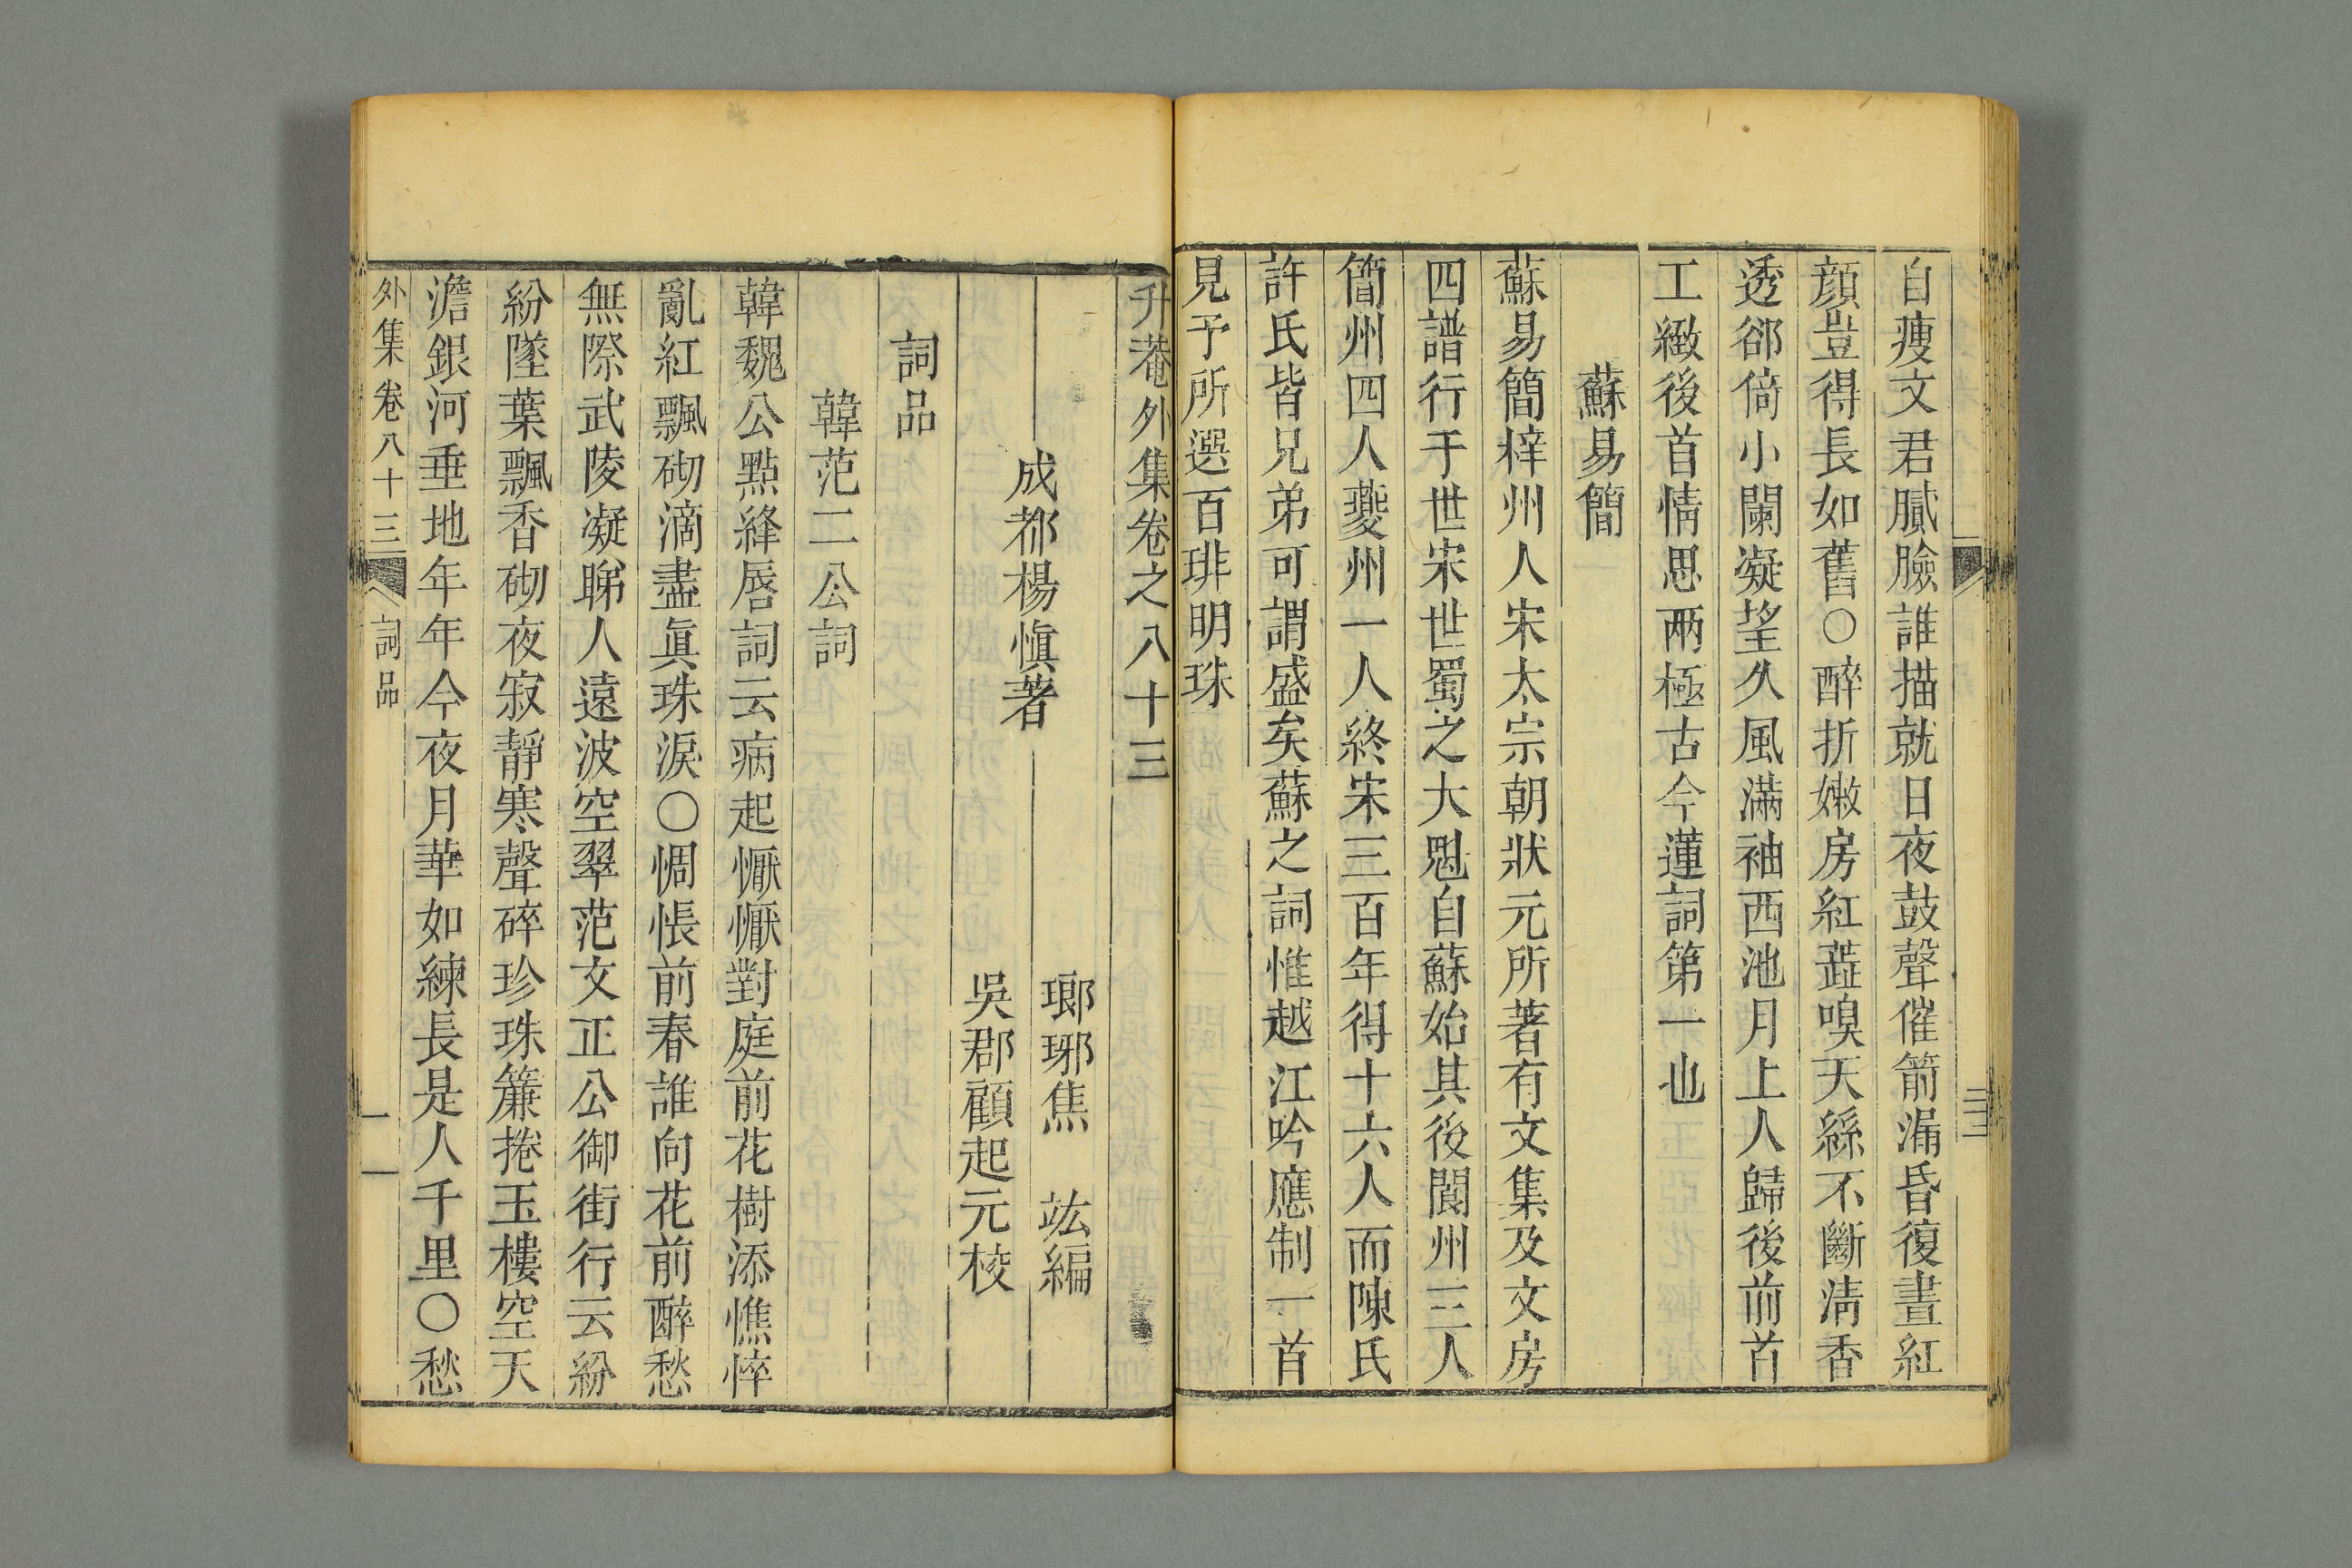 自瘦文君膩臉誰描就日夜鼓聲催箭漏昏復晝紅
顔豈得長如舊○醉折嫩房紅蘂嗅天絲不斷淸香
透郤倚小闌凝望久風滿袖西池月上人歸後前首
工緻後首情思兩極古今蓮詞第一也
蘇易簡
蘇易簡梓州人宋太宗朝狀元所著有文集及文房
四譜行于世宋世蜀之大魁自蘇始其後閬州三人
簡州四人夔州一人終宋三百年得十六人而陳氏
許氏皆兄弟可謂盛矣蘇之詞惟越江吟應制一首
見予所選百琲明珠
升菴外集卷之八十三
瑯琊焦 竑編
成都楊愼著
吳郡顧起元校
詞品
韓范二公詞
韓魏公點絳唇詞云病起懨懨對庭前花樹添憔悴
亂紅飄砌滴盡眞珠淚○惆悵前春誰向花前醉愁
無際武陵凝睇人遠波空翠范文正公御街行云紛
紛墜葉飄香砌夜寂靜寒聲碎珍珠簾捲玉樓空天
澹銀河垂地年年今夜月華如練長是人千里○愁
外集卷八十三 詞品 一